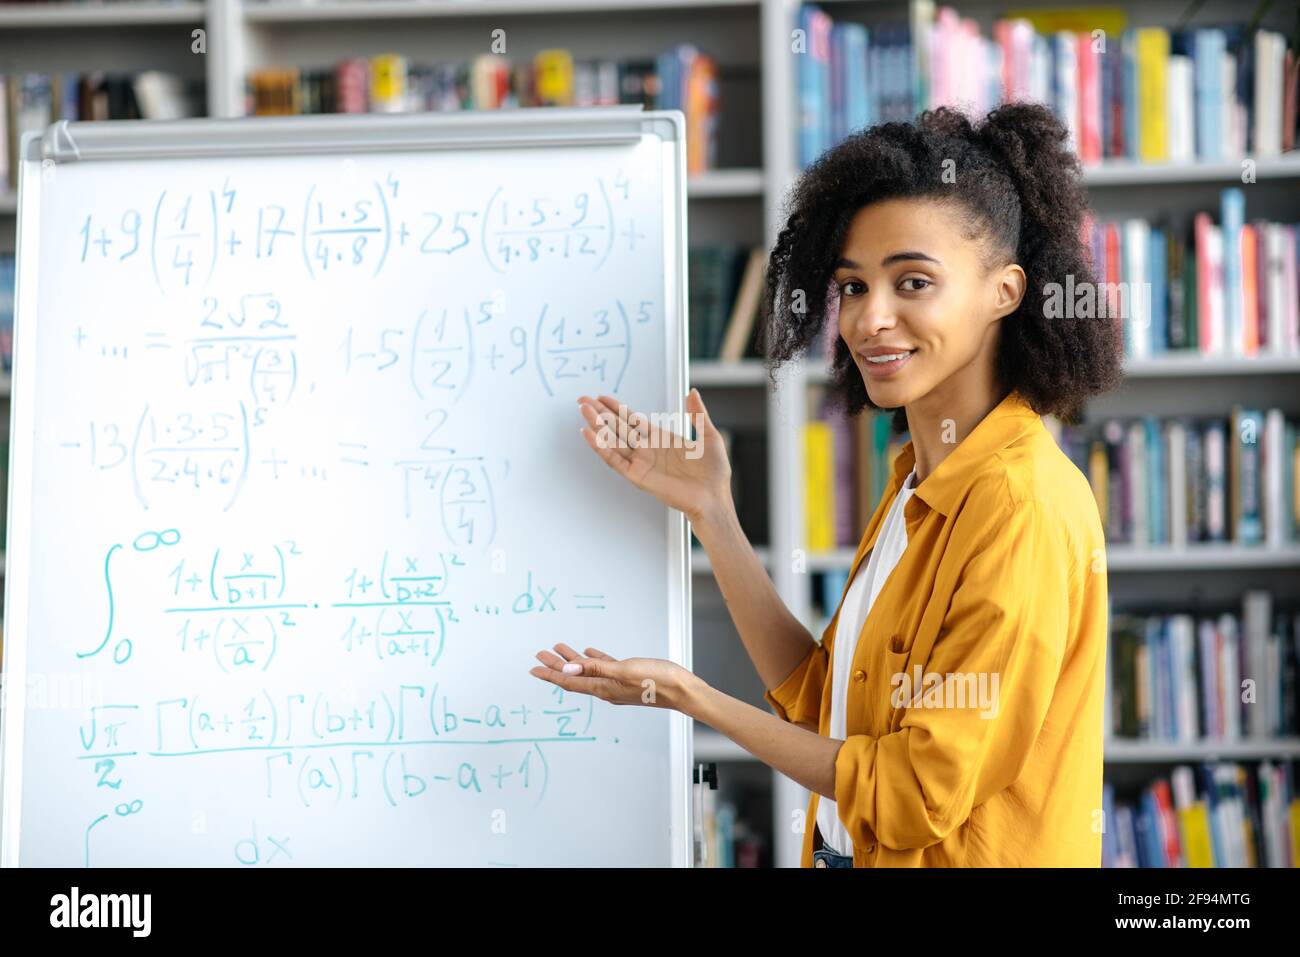 1+9(1/4)^4+17(1·5/4·8)^4+25(1·5·9/4·8·12)^4+
+...=2√2/√π Γ^2(3/4), 1-5(1/2)^5+9(1·3/2·4)^5
-13(1·3·5/2·4·6)^5+...=2/Γ^4(3/4),
∫_0^∞ 1+(x/b+1)^2/1+(x/a)^2 · 1+(x/b+2)^2/1+(x/a+1)^2 ... dx =
√π/2 Γ(a+1/2)Γ(b+1)Γ(b-a+1/2)/Γ(a)Γ(b-a+1).
∫^∞ dx =
alamy
Image ID: 2F94MTG
www.alamy.com